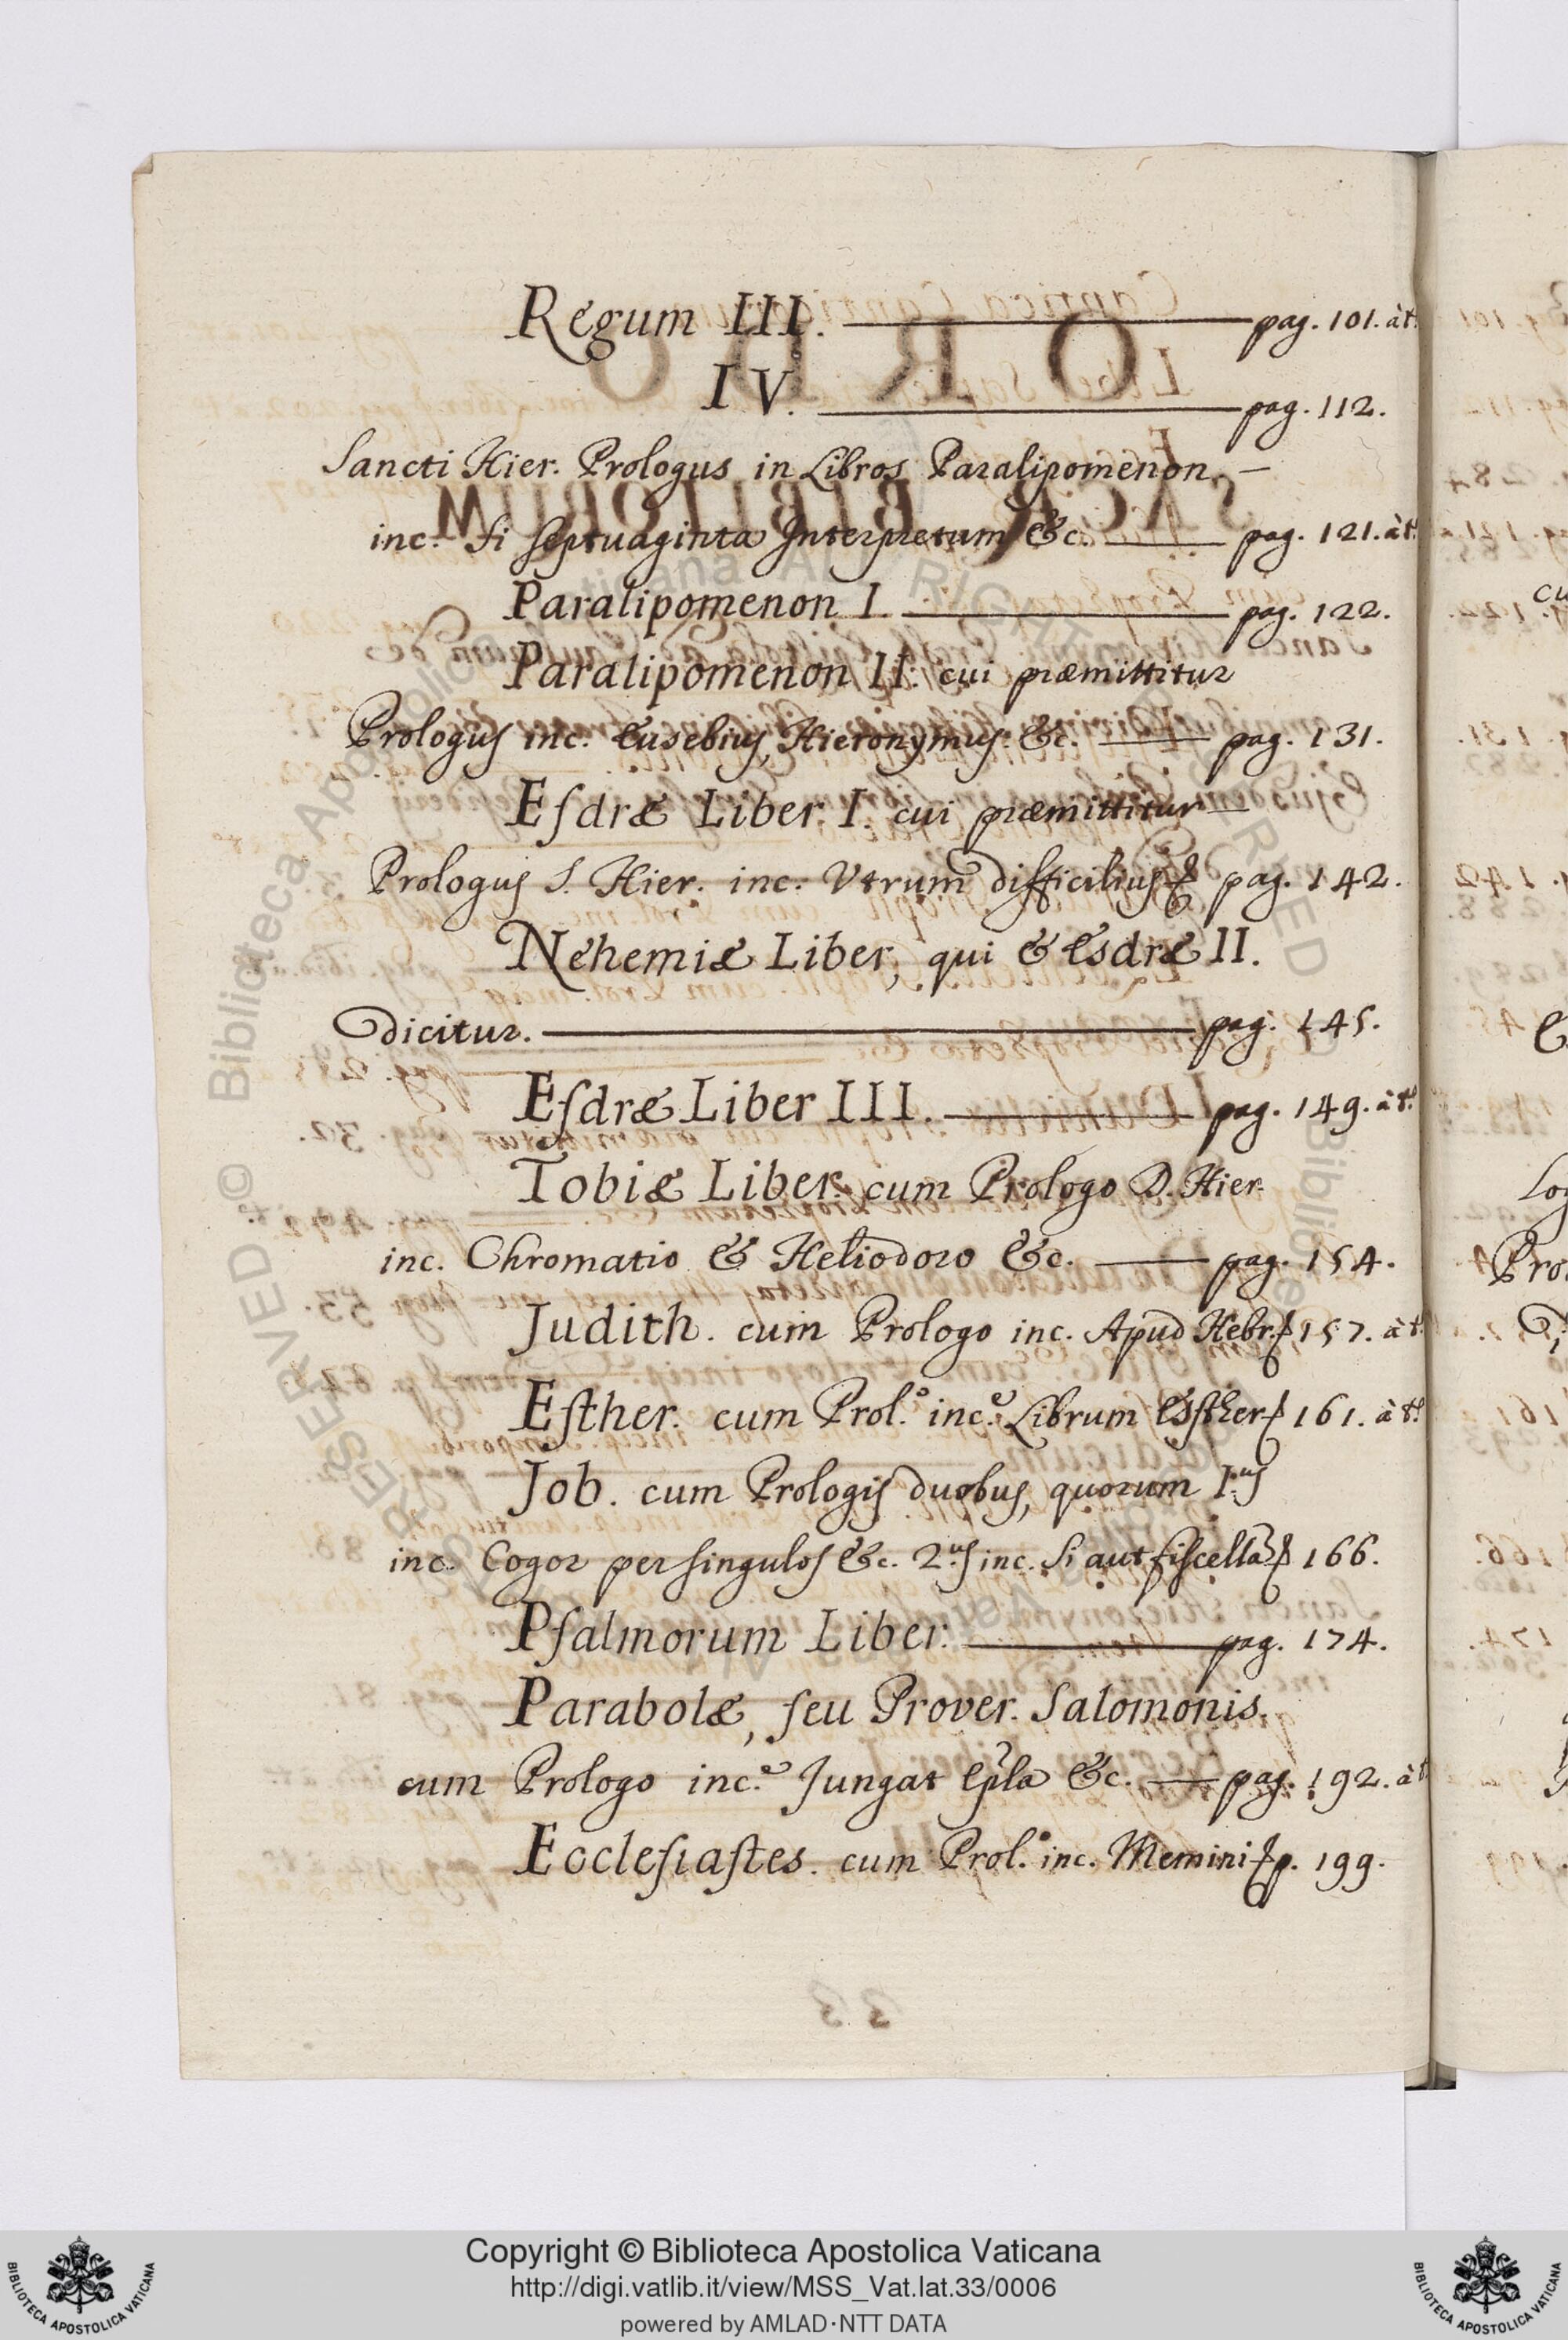 Regum III. pag. 101. à tº
IV. pag. 112.
Sancti Hier. Prologus in Libros Paralipomenon. —
inc. Si septuaginta Interpretum &c. pag. 121. à tº
Paralipomenon I. pag. 122.
Paralipomenon II. cui præmittitur
Prologus inc. Eusebius, Hieronymus. &c. pag. 131.
Eſdræ Liber I. cui præmittitur —
Prologus S. Hier. inc. Vtrum difficilius & pag. 142.
Nehemiæ Liber, qui & Esdræ II.
dicitur. pag. 145.
Eſdræ Liber III. pag. 149. à tº
Tobiæ Liber. cum Prologo D. Hier.
inc. Chromatio & Heliodoro &c. pag. 154.
Judith. cum Prologo inc. Apud Hebr. & 157. à tº
Eſther. cum Prol.º inc.e Librum Esſther & 161. à tº
Job. cum Prologis duobus, quorum I.us
inc. Cogor per singulos &c. 2.us inc. Si aut fiscellã & 166.
Pſalmorum Liber. pag. 174.
Parabolæ, seu Prover. Salomonis.
cum Prologo inc.e Jungat epla &c. — pag. 192. à t
Eccleſiaſtes. cum Prol.º inc. Memini & p. 199.
Copyright © Biblioteca Apostolica Vaticana
http://digi.vatlib.it/view/MSS_Vat.lat.33/0006
powered by AMLAD·NTT DATA
BIBLIOTECA APOSTOLICA VATICANA
BIBLIOTECA APOSTOLICA VATICANA